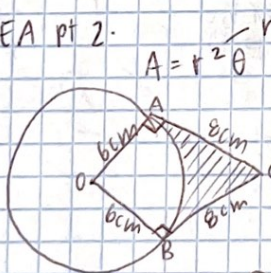 EA pt 2.
A = r²θ
A
6cm
8cm
O
6cm
8cm
B